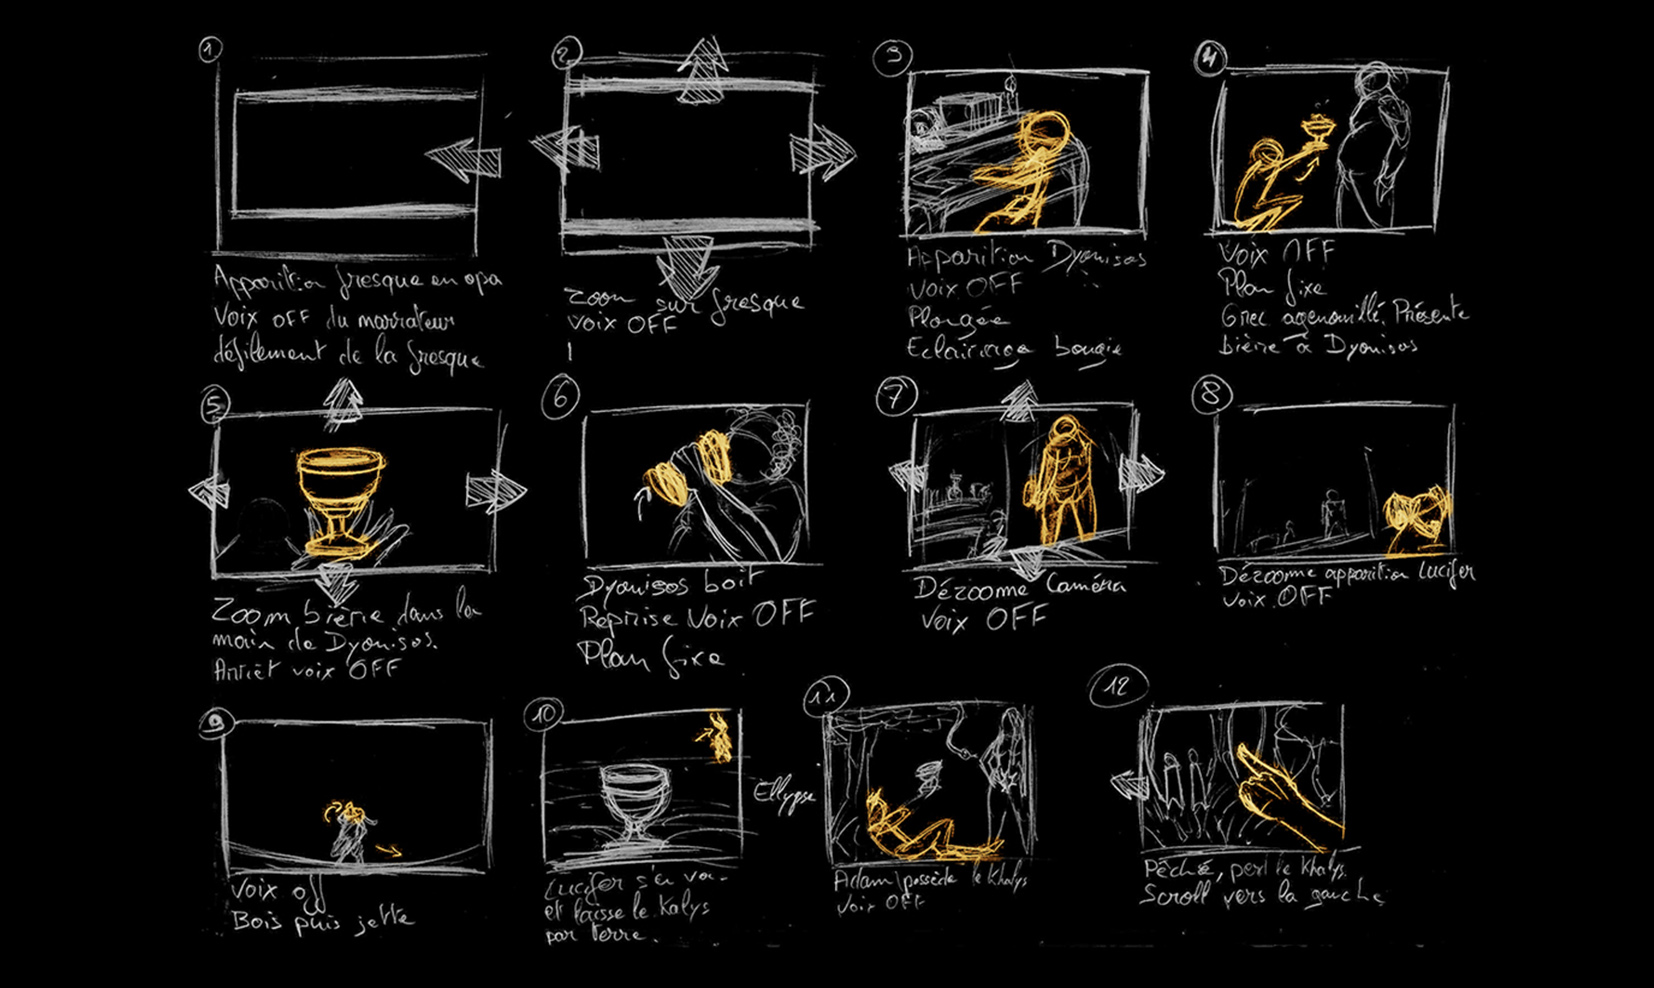 1
Apparition fresque en opa
Voix OFF du narrateur
défilement de la fresque
2
Zoom sur fresque
Voix OFF
3
Apparition Dyonisos
Voix OFF
Plongée
Eclairage bougie
4
Voix OFF
Plan fixe
Grec agenouillé. Présente
bière à Dyonisos
5
Zoom bière dans la
main de Dyonisos.
Arrêt voix OFF
6
Dyonisos boit
Reprise Voix OFF
Plan fixe
7
Dézoome Caméra
Voix OFF
8
Dézoome apparition Lucifer
Voix OFF
9
Voix off
Bois puis jette
10
Lucifer s'en va
et laisse le Kalys
par terre.
Ellypse
11
Adam possède le Khalys
Voix OFF
12
Pêché, perd le Khalys.
Scroll vers la gauche